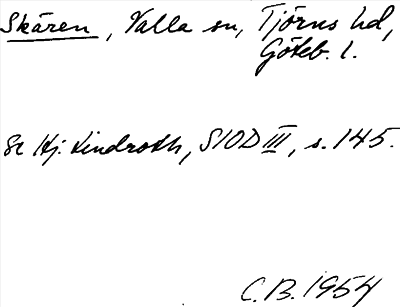 Skären, Valla sn, Tjörns hd,
Göteb. l.
Se Hj. Lindroth, SIOD III, s. 145.
C.B. 1954